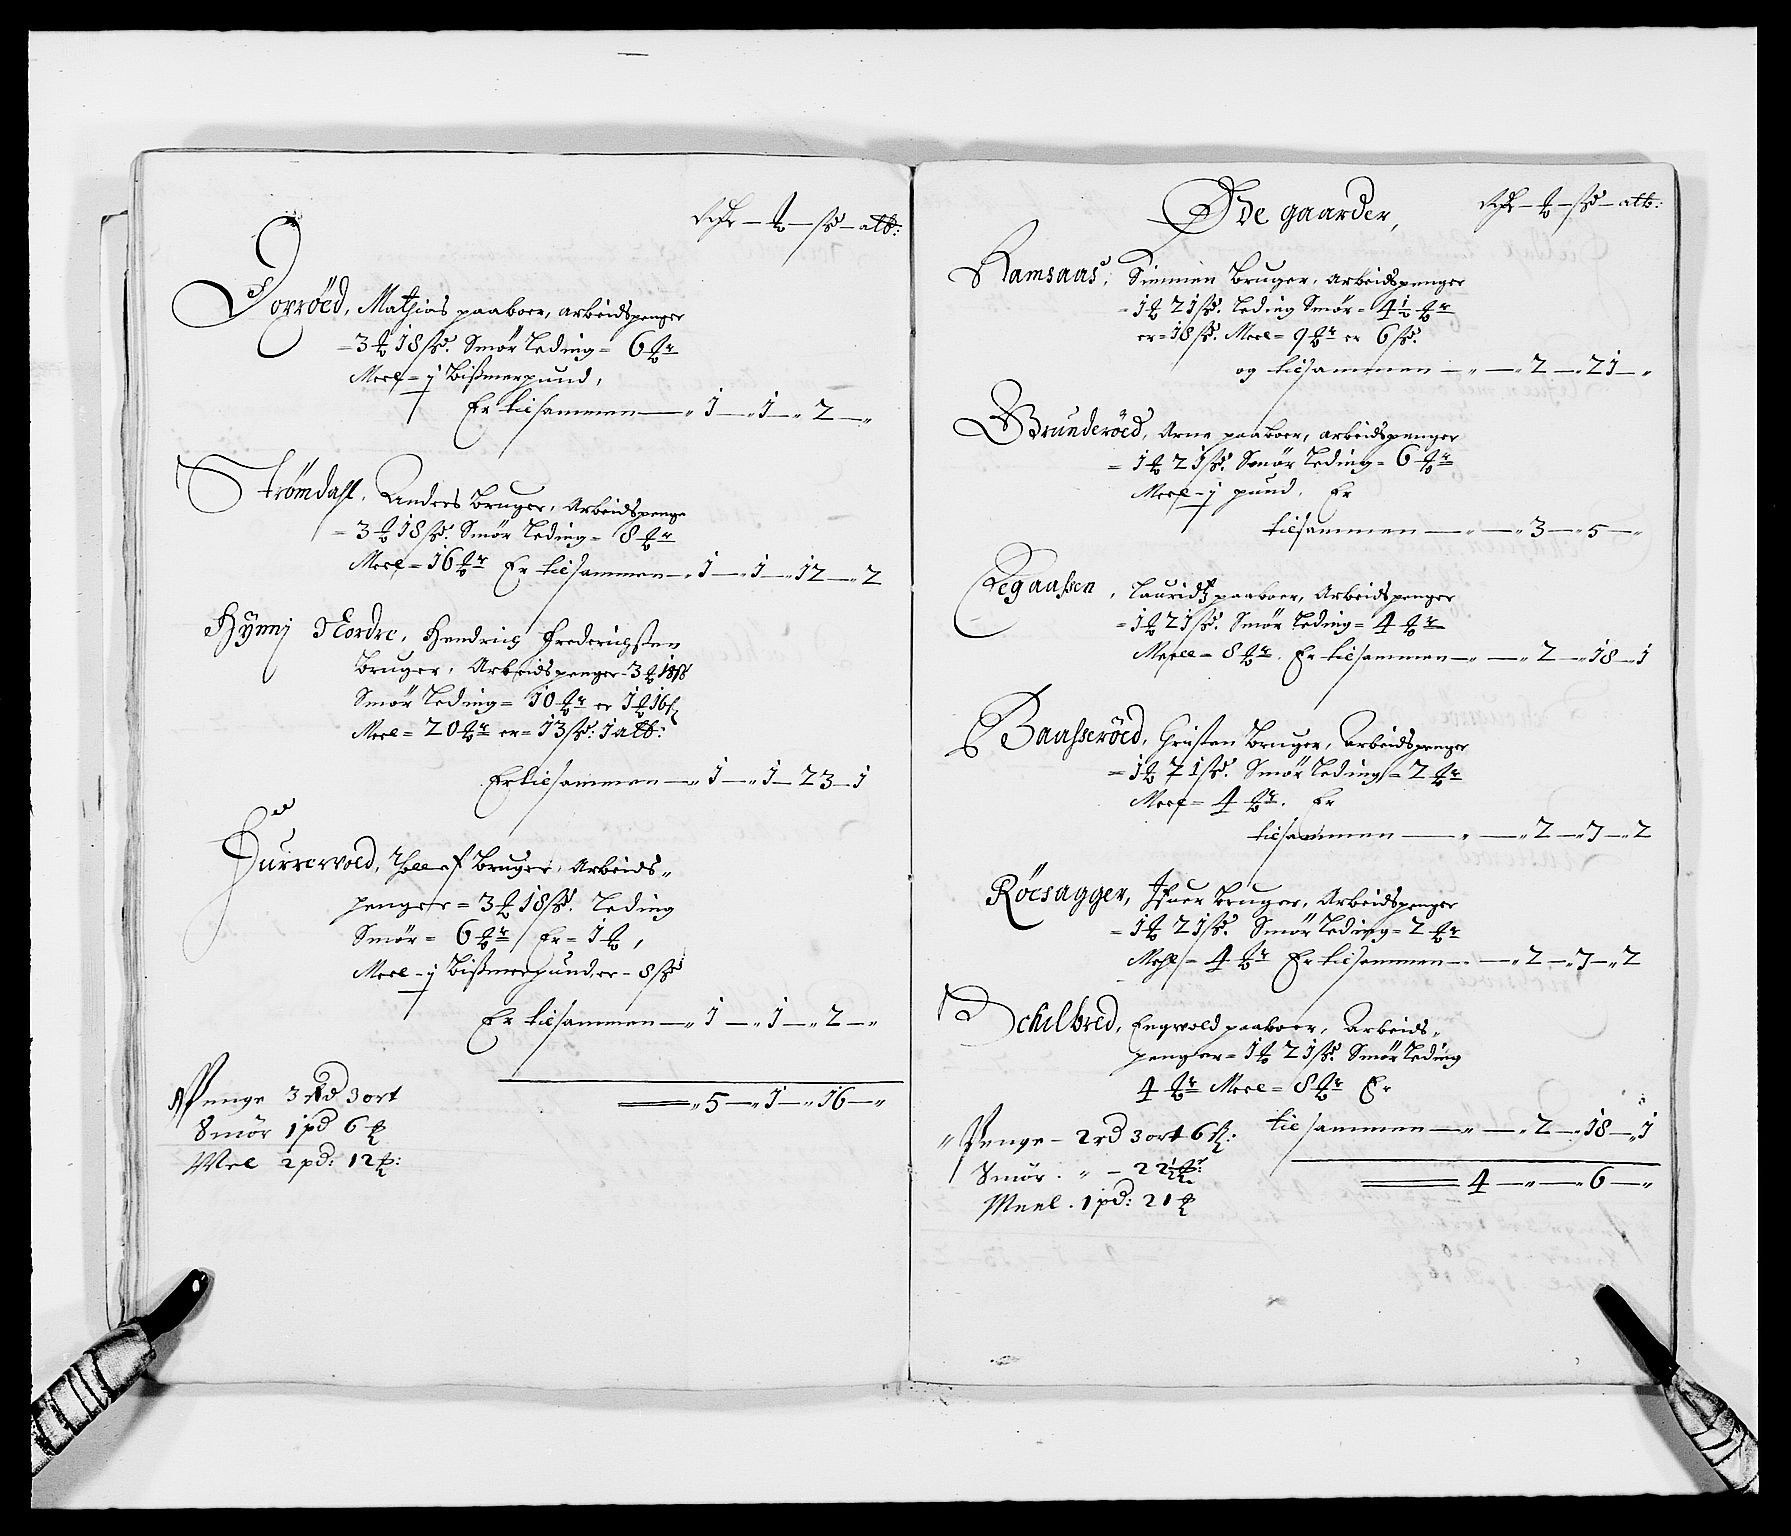 Rdr — ℔ — sß — alb:
Dorröed, Mathias paaboer, arbeidspenger
= 3 ℔ 18 sß. Smör Leding = 6 ℔r
Meel = j Bißmerpund,
Er tilsammen — „ 1 — „ 1 — „ 2 — „
Strömdahl, Anders Bruger, Arbeidspenge
= 3 ℔ 18 sß. Smör Leding = 8 ℔r
Meel = 16 ℔r Er tilsammen — „ 1 — „ 1 — „ 12 — „ 2
Hÿnnj Nordre, Hendrich Frederichsten
Bruger, Arbeidspenger = 3 ℔ 18 sß
Smör Leding = 10 ℔r er 1 ℔ 16 sß
Meel = 20 ℔r er = 13 sß: 1 alb:
Er tilsammen — „ 1 — „ 1 — 23 — 1
Hurrevold, Bruger, Arbeids„
penger = 3 ℔ 18 sß. Leding
Smör = 6 ℔r / Er = 1 ℔,
Meel = j Bißmerpund, er = 8 sß
Er tilsammen — „ 1 — „ 1 — „ 2 — „
„ 5 — „ 1 — „ 16 — „
Penge 3 rd 3 ort
Smör 1 pd 6 ℔
Mel 2 pd: 12 ℔:
Øde gaarder,
Rdr — ℔ — sß — alb:
Ramsaas, Simmen Bruger, Arbeidspenger
= 1 ℔ 21 sß. Leding Smör = 4 ½ ℔r
er = 18 sß. Meel = 9 ℔r er 6 sß.
og tilsammen — „ — „ 2 — „ 21 — „
Brunderöed, Arne paaboer, arbeidspenger
= 1 ℔ 21 sß. Smör Leding = 6 ℔r
Meel = j pund, Er
tilsammen — „ — „ 3 — „ 5 — „
Egaassen, Lauridtz paaboer, Arbeidspenger
= 1 ℔ 21 sß. Smör Leding = 4 ℔r
Meell = 8 ℔r. Er tilsammen — „ — „ 2 — „ 18 — 1
Baasseröed, Christen Bruger, Arbeidspenger
= 1 ℔ 21 sß. Smör Leding = 2 ℔r
Meel = 4 ℔r. Er
tilsammen — „ — „ 2 — „ 7 — „ 2
Röesagger, Ifuer Bruger, Arbeidspenger
= 1 ℔ 21 sß. Smör Leding = 2 ℔r
Mehl = 4 ℔r Er tilsammen — „ — „ 2 — „ 7 — „ 2
Schelbred, Engwold paaboer, Arbeids„
penger = 1 ℔ 21 sß. Smör Leding
4 ℔r Meel = 8 ℔r Er
tilsammen — „ — „ 2 — „ 18 — „ 1
4 — „ — „ 6 — „
„ Penge — 2 rd 3 ort 6 sß:
Smör . „ — 22 ½ ℔:
Meel . 1 pd: 21 ℔